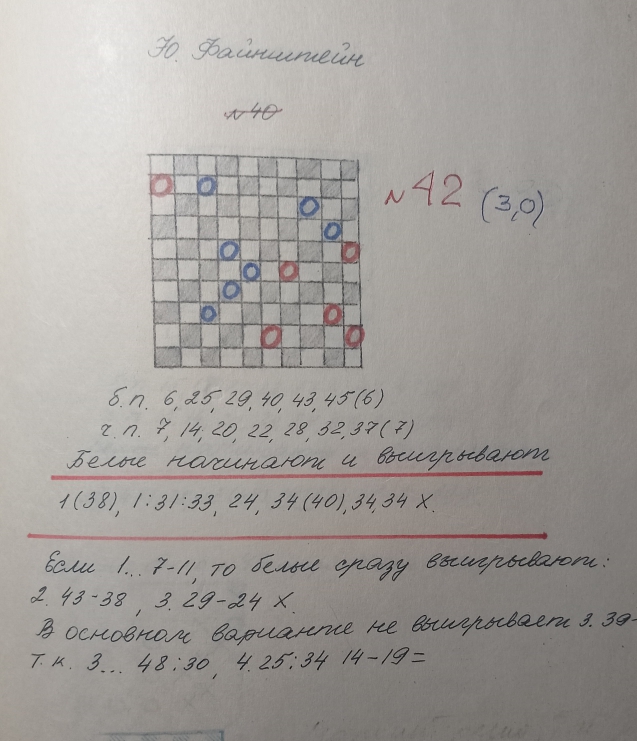 Ю. Файнштейн
№40
№42 (3,0)
б.п. 6, 25, 29, 40, 43, 45 (6)
ч.п. 7, 14, 20, 22, 28, 32, 37 (7)
Белые начинают и выигрывают
1(38), 1:31:33, 24, 34(40), 34, 34 X.
Если 1... 7-11, то белые сразу выигрывают:
2. 43-38, 3. 29-24 X.
В основном варианте не выигрывает 3. 39-
т.к. 3... 48:30, 4. 25:34 14-19=